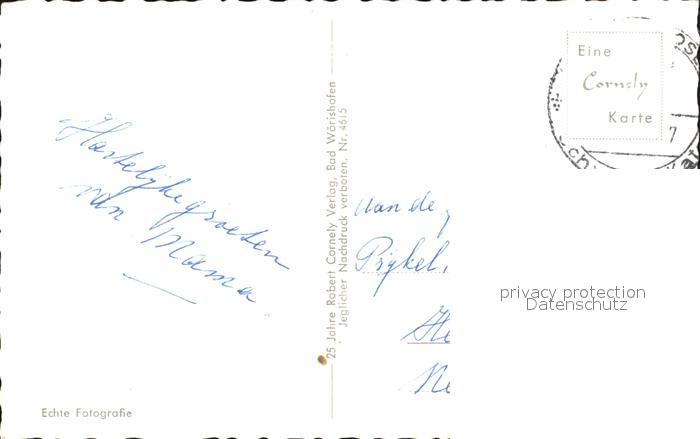 Hartelijke groeten
van Mama
25 Jahre Robert Cornely Verlag, Bad Wörishofen
Jeglicher Nachdruck verboten, Nr. 4615
Echte Fotografie
Eine
Cornely
Karte
7
aan de
privacy protection
Datenschutz